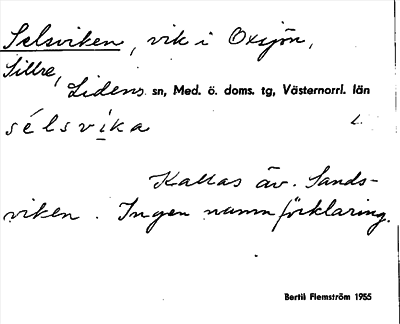 Selsviken, vik i Oxsjön,
Sillre,
Lidens sn, Med. ö. doms. tg, Västernorrl. län
sélsvika L.
Kallas äv. Sands-
viken. Ingen namnförklaring.
Bertil Flemström 1955